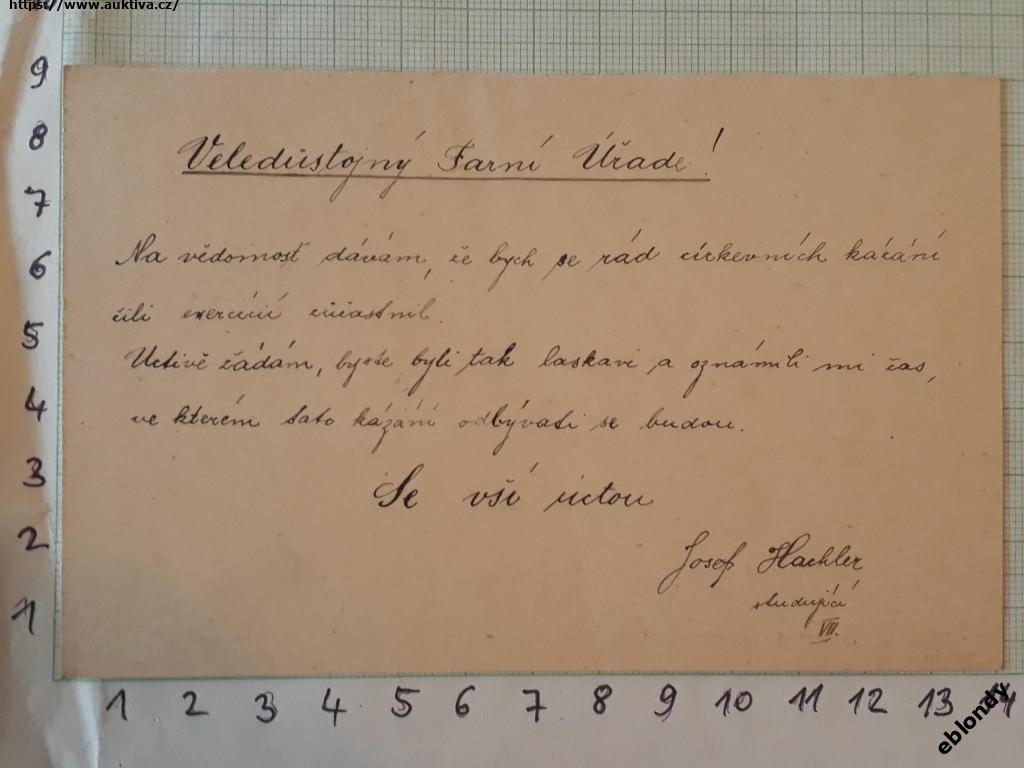 https://www.auktiva.cz/
9
8
7
6
5
4
3
2
1
Veledůstojný Farní Úřade!
Na vědomost dávám, že bych se rád církevních kázání
čili exercicií zúčastnil.
Uctivě žádám, byste byli tak laskavi a oznámili mi čas,
ve kterém tato kázání odbývati se budou.
Se vší úctou
Josef Hachler
studující
VII.
1 2 3 4 5 6 7 8 9 10 11 12 13 14
eblondy